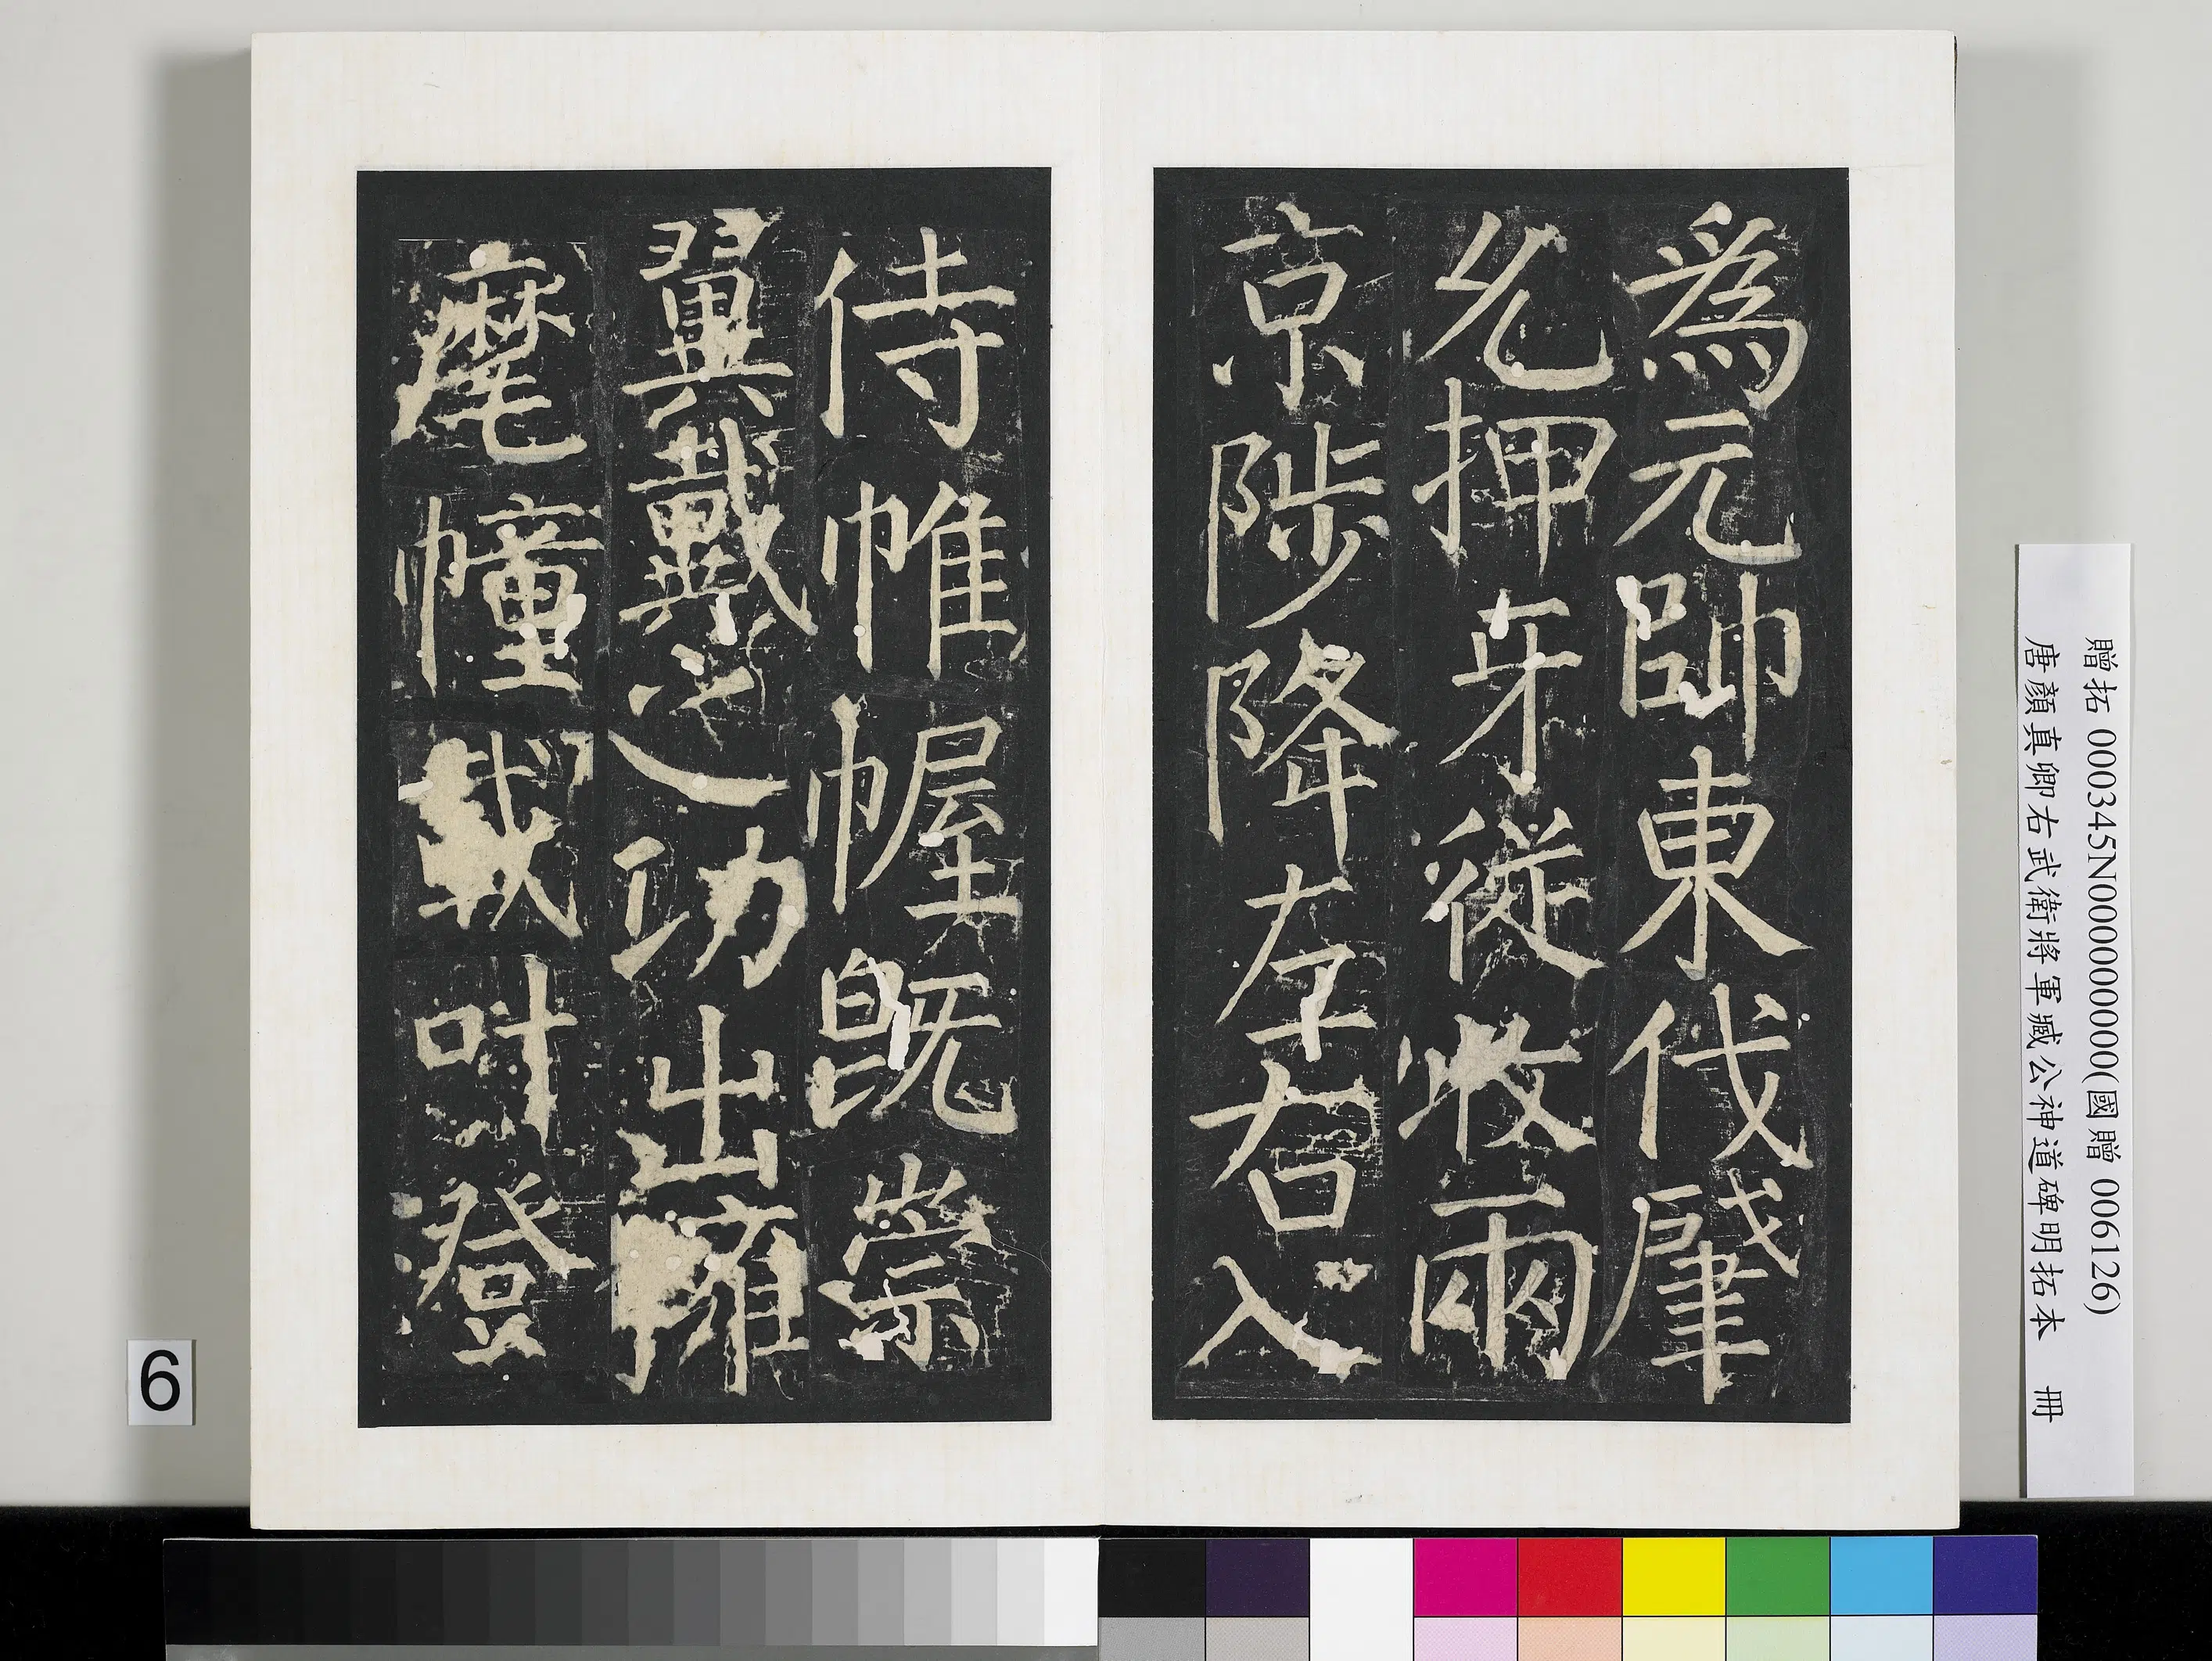 為元帥東伐肇
允押牙從收兩
京陟降左右入
侍帷幄既崇
翼戴之功出擁
麾幢載叶登
贈拓 000345N000000000(國贈 006126)
唐顏真卿右武衛將軍臧公神道碑明拓本 冊
6